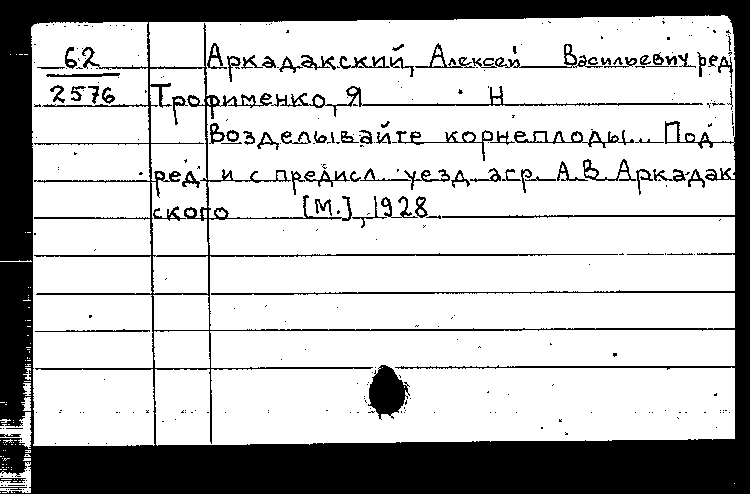 62 Аркадакский, Алексей Васильевич ред
2576 Трофименко, Я Н
Возделывайте корнеплоды... Под
ред. и с предисл. уезд. агр. А.В. Аркадак-
ского [М.], 1928